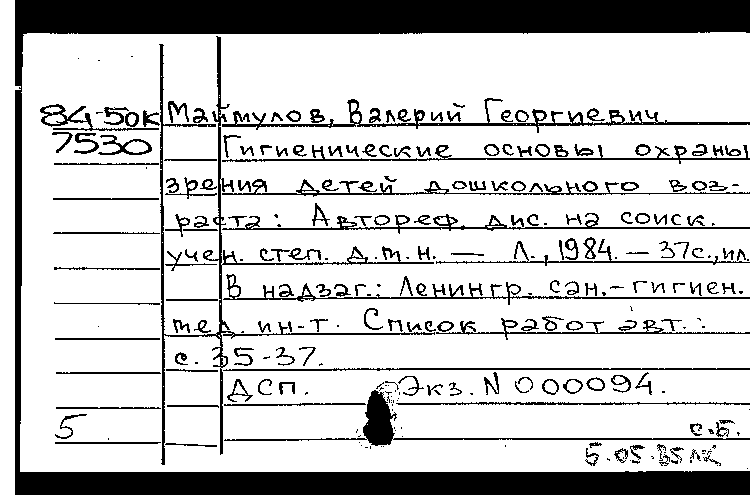 84-50к Маймулов, Валерий Георгиевич.
7530 Гигиенические основы охраны
зрения детей дошкольного воз-
раста: Автореф. дис. на соиск.
учен. степ. д.м.н. — Л., 1984. — 37с., ил
В надзаг.: Ленингр. сан.-гигиен.
мед. ин-т. Список работ авт.:
с. 35-37.
ДСП. Экз. N 000094.
5 с.Б.
5.05.85 ЛК